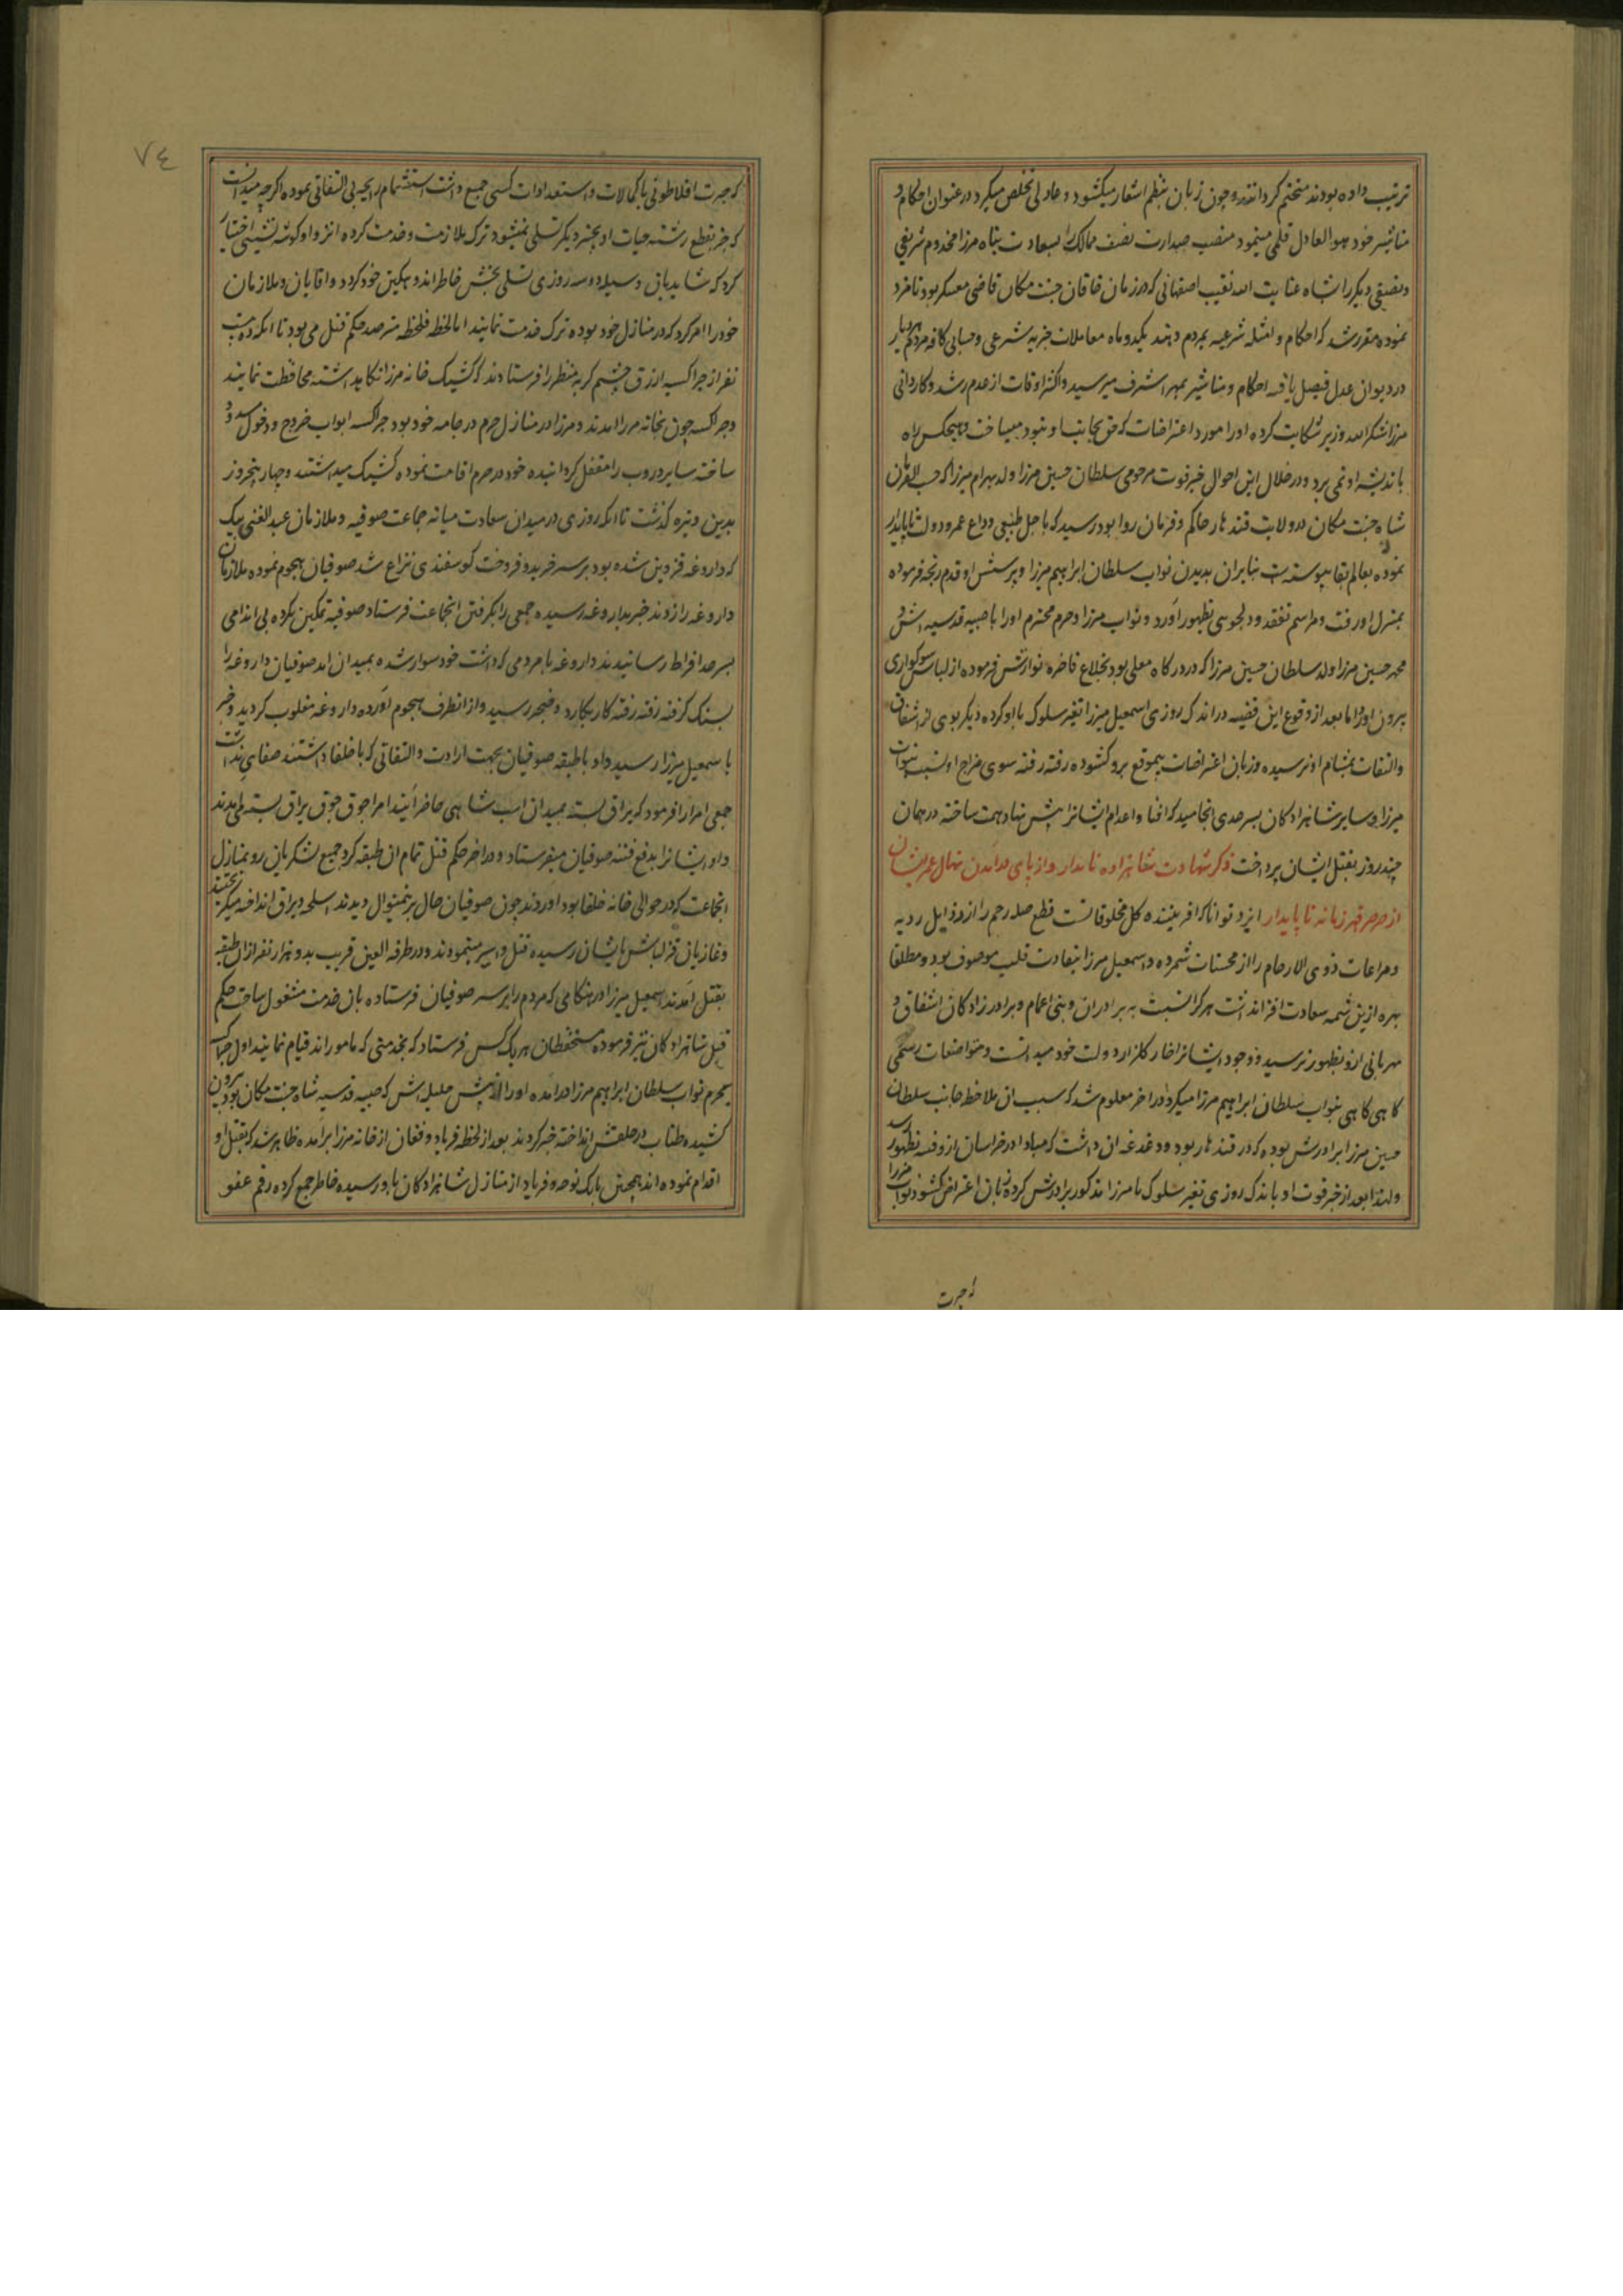 ترتیب داده بودند مختم کردانند و چون زبان بنظم اشعار میکشود و عادلی تخلص میکرد در عنوان احکام و
مناشیر خود هو العادل قلمی مینمود منصب صدارت نصف ممالک را بسعادت پناه مرزا مخدوم شریفی
و نصفی دیگر را بشاه عنایت الله نقیب اصفهانی که در زمان خاقان جنت مکان قاضی معسکر بود نامزد
نموده مقرر شد که احکام و امثله شرعیه بمردم دهند یکدو ماه معاملات جزیه شرعی و حسابی کافه مردم هر دیار
در دیوان عدل فیصل یافته احکام و مناشیر بمهر اشرف میرسید و اکثر اوقات از عدم رشد و کاردانی
مرزا شکرالله وزیر شکایت کرده او را مورد اعتراضات که حق بجانب او نبود میساخت و هیچکس راه
باندیشه او نمی برد و در خلال این احوال خبر فوت مرحومی سلطان حسین مرزا ولد بهرام میرزا که حسب الفرمان
شاه جنت مکان در ولایت قندهار حاکم و فرمان روا بود رسید که باجل طبیعی وداع عمر و دولت ناپایدار
نموده بعالم بقا پیوسته است بنابر آن بدیدن نواب سلطان ابراهیم میرزا و پرسش او قدم رنجه فرموده
بمنزل او رفت و مراسم تفقد و دلجویی بظهور آورد و نواب مرزا و حرم محترم او را با صبیه قدسیه اش و
محمد حسین مرزا ولد سلطان حسین مرزا که در درکاه معلی بود بخلاع فاخره نوازش فرموده از لباس سوکواری
بیرون آورد اما بعد از وقوع این قضیه در اندک روزی اسمعیل میرزا تغیر سلوک با او کرده دیگر بوی از اشفاق
و التفات بمشام او نرسیده و زبان اعتراضات بیموقع برو کشوده رفته رفته سوی مزاج او نسبت بنواب
میرزا و سایر شاهزادکان بسرحدی انجامید که افنا و اعدام ایشانرا پیش نهاد همت ساخته در همان
چند روز بقتل ایشان پرداخت ذکر شهادت شاهزاده نامدار و از پای درآمدن نهال عمر ایشان
از صرصر قهر زمانه ناپایدار ایزد توانا که آفریننده کل مخلوقاتست قطع صله رحم را از رذایل ردیه
و مراعات ذوی الارحام را از محسنات شمرده و اسمعیل مرزا بقساوت قلب موصوف بود و مطلقا
بهره ازین شمه سعادت افزا نداشت هرکز نسبت به برادران و بنی اعمام و برادر زادکان اشفاق و
مهربانی ازو بظهور نرسید و وجود ایشانرا خار کلزار دولت خود میدانست و تواضعات رسمی
کاهی کاهی بنواب سلطان ابراهیم مرزا میکرد در آخر معلوم شد که سبب آن ملاحظه جانب سلطان
حسین مرزا برادرش بوده که در قندهار بود و دغدغه آن داشت که مبادا در خراسان ازو فتنه بظهور رسد
و لهذا بعد از خبر فوت او باندک روزی تغیر سلوک با مرزا مذکور برادرش کرده زبان اعتراض کشود نواب مرزا
که حیرت
٧٤
که حیرت افلاطونی با کمالات و استعدادات کسبی جمع داشت استشمام رایحه بی التفاتی نموده اکرچه میدانست
که جز بقطع رشته حیات او بچیز دیگر تسلی نمیشود ترک ملازمت و خدمت کرده انزوا و کوشه نشینی اختیار
کرد که شاید باین وسیله دو سه روزی تسلی بخش خاطر اندوهکین خود کردد و آقایان و ملازمان
خود را امر کرد که در منازل خود بوده ترک خدمت نمایند اما لحظه فلحظه مترصد حکم قتل می بود تا آنکه ده بیست
نفر از چراکسه ازرق چشم کریه منظر را فرستادند که کشیک خانه مرزا نکاهداشته محافظت نمایند
و چراکسه چون بخانه مرزا آمدند و مرزا در منازل حرم در جامه خود بود چراکسه ابواب خروج و دخول مسدود
ساخته سایر دروب را مقفل کردانیده خود در حرم اقامت نموده کشیک میداشتند و چهار پنج روز
بدین وتیره کذشت تا آنکه روزی در میدان سعادت میانه جماعت صوفیه و ملازمان عبدالغنی بیک
که داروغه قزوین شده بود بر سر خرید و فروخت کوسفندی نزاع شد صوفیان هجوم نموده ملازمان
داروغه را زدند خبر بداروغه رسیده جمعی را بکرفتن انجماعت فرستاد صوفیه تمکین نکرده بی اندامی
بسرحد افراط رسانیدند داروغه با مردمی که داشت خود سوار شده بمیدان آمد صوفیان داروغه را
بسنک کرفته رفته رفته کار بکارد و خنجر رسید و از آنطرف هجوم آورده داروغه مغلوب کردید و خبر
باسمعیل میرزا رسید و او با طبقه صوفیان بجهت ارادت و التفاتی که با خلفا داشتند صفایی نداشت
جمعی امرا را فرمود که یراق بسته بمیدان اسب شاهی حاضر آیند امرا جوق جوق یراق بسته می آمدند
و او ایشانرا بدفع فتنه صوفیان میفرستاد و در آخر حکم قتل تمام آن طبقه کرد جمیع لشکریان رو بمنازل
انجماعت که در حوالی خانه خلفا بود آوردند چون صوفیان حال برینمنوال دیدند اسلحه و یراق انداخته میکریختند
و غازیان قزلباش بایشان رسیده قتل و اسیر مینمودند و در طرفه العین قریب بدو هزار نفر از آن طبقه
بقتل آمدند اسمعیل میرزا در هنکامی که مردم را بر سر صوفیان فرستاده بآن خدمت مشغول ساخت حکم
قتل شاهزادکان نیز فرموده مستحفظان هر یک کس فرستاد که بخدمتی که مامورند قیام نمایند اول چراکسه
بحرم نواب سلطان ابراهیم مرزا در آمده او را از پیش حلیله اش که صبیه قدسیه شاه جنت مکان بود بیرون
کشیده طناب در حلقش انداخته خبه کردند بعد از لحظه فریاد و فغان از خانه مرزا برآمده ظاهر شد که بقتل او
اقدام نموده اند همچنین بانک نوحه و فریاد از منازل شاهزادکان باو رسیده خاطر جمع کرده رقم عفو